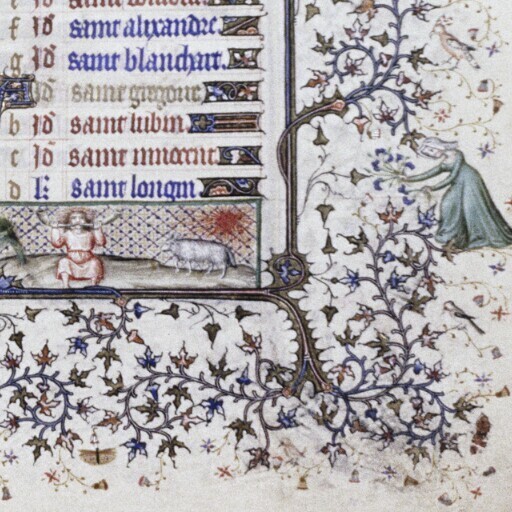 f id saint alixandre
g id saint blanchart.
A id saint gregoire
b id saint lubin
c id saint innocent
d kl saint longin